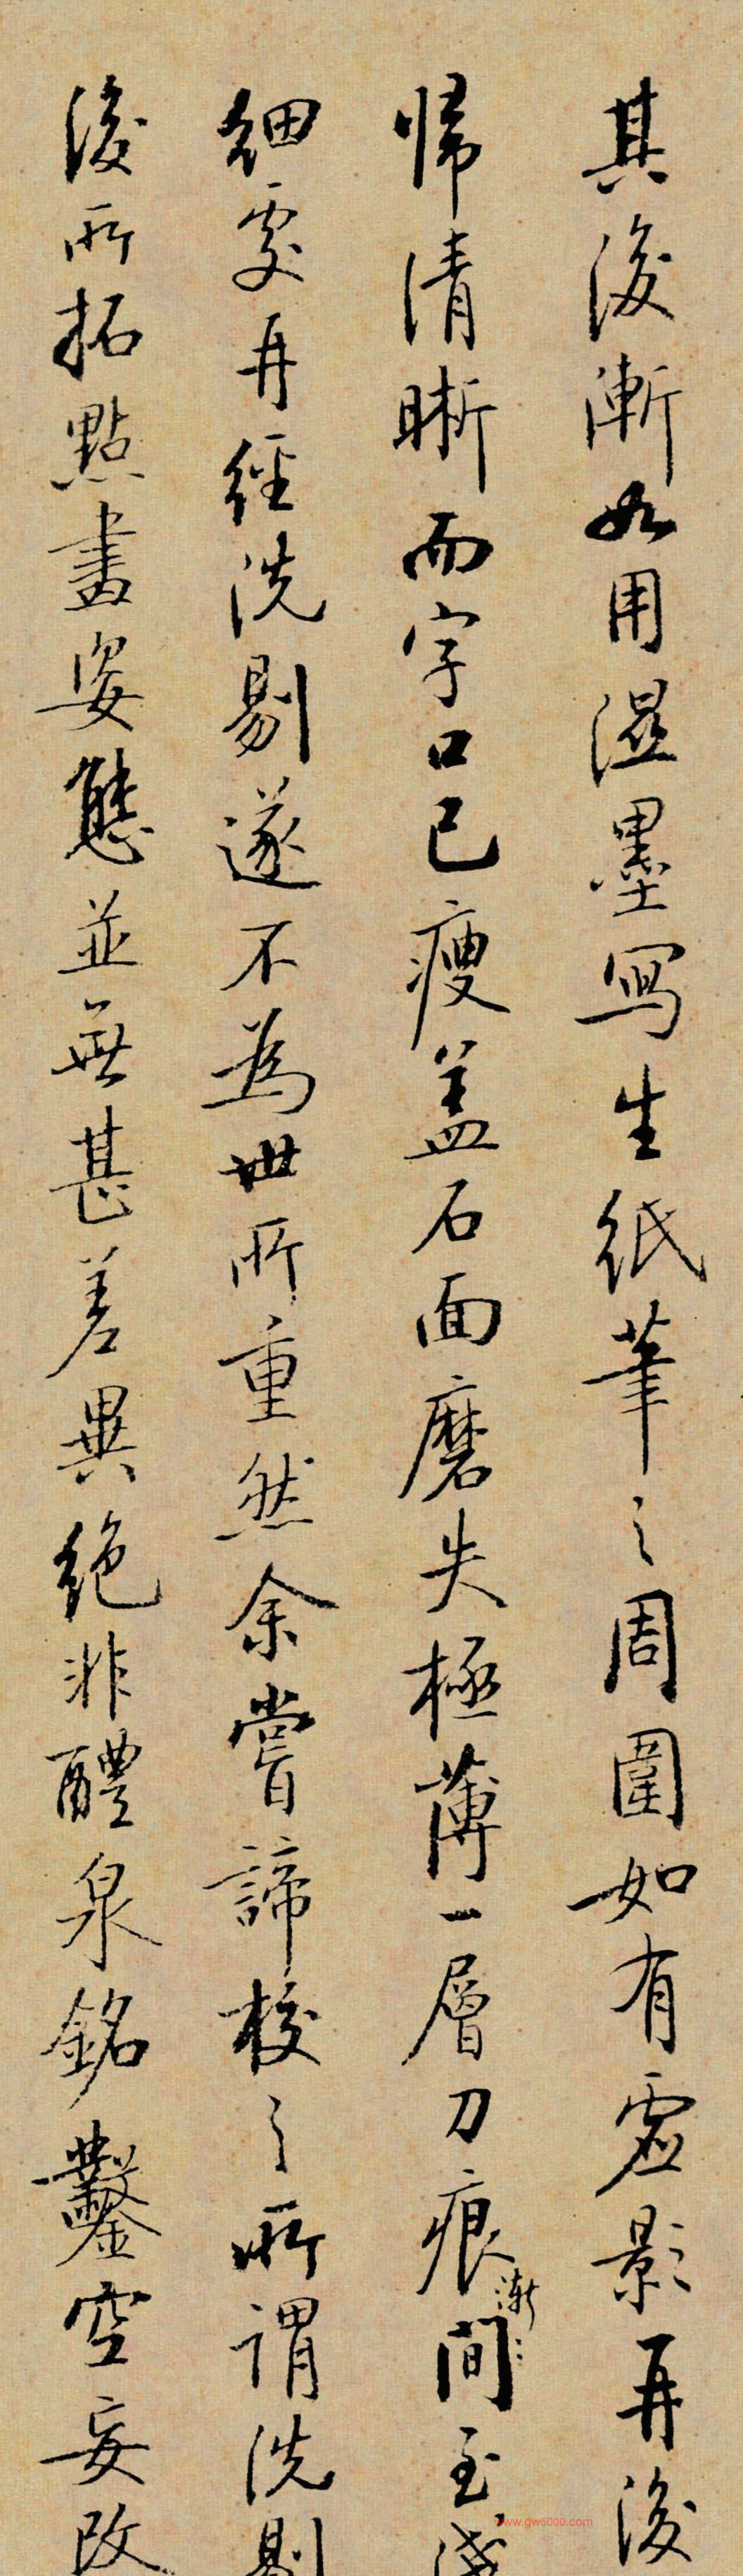 其後漸如用濕墨寫生紙筆之周圍如有虛影再後
歸清晰而字口已瘦蓋石面磨失極薄一層刀痕漸漸間至淺
細處再經洗剔遂不為世所重然余嘗諦校之所謂洗剔
後所拓點畫姿態並無甚差異絕非醴泉銘鑿空妄改
www.gw5000.com